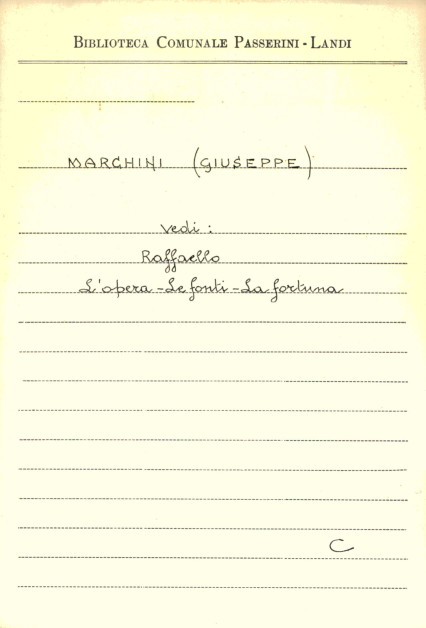 BIBLIOTECA COMUNALE PASSERINI - LANDI
MARCHINI (GIUSEPPE)
vedi :
Raffaello
L'opera - Le fonti - La fortuna
C